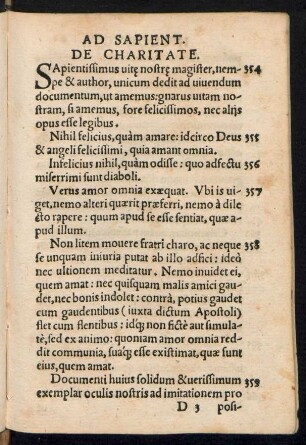 AD SAPIENT.
DE CHARITATE.
SApientissimus uitę nostrę magister, nem- 354
pe & author, unicum dedit ad uiuendum
documentum, ut amemus: gnarus uitam no-
stram, si amemus, fore felicissimos, nec alijs
opus esse legibus.
Nihil felicius, quàm amare: idcirco Deus 355
& angeli felicissimi, quia amant omnia.
Infelicius nihil, quàm odisse: quo adfectu 356
miserrimi sunt diaboli.
Verus amor omnia exæquat. Vbi is ui- 357
get, nemo alteri quærit præferri, nemo à dile
cto rapere: quum apud se esse sentiat, quæ a-
pud illum.
Non litem mouere fratri charo, ac neque 358
se unquam iniuria putat ab illo adfici: ideò
nec ultionem meditatur. Nemo inuidet ei,
quem amat: nec quisquam malis amici gau-
det, nec bonis indolet: contrà, potius gaudet
cum gaudentibus (iuxta dictum Apostoli)
flet cum flentibus: idq́ non fictè aut simula-
tè, sed ex animo: quoniam amor omnia red-
dit communia, suaq́ esse existimat, quæ sunt
eius, quem amat.
Documenti huius solidum & uerissimum 359
exemplar oculis nostris ad imitationem pro
D 3 posi-